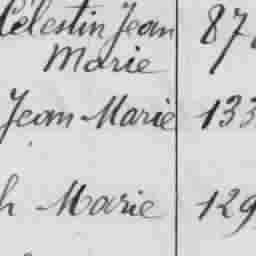 Célestin Jean 87
Marie
Jean-Marie 133
h Marie 129